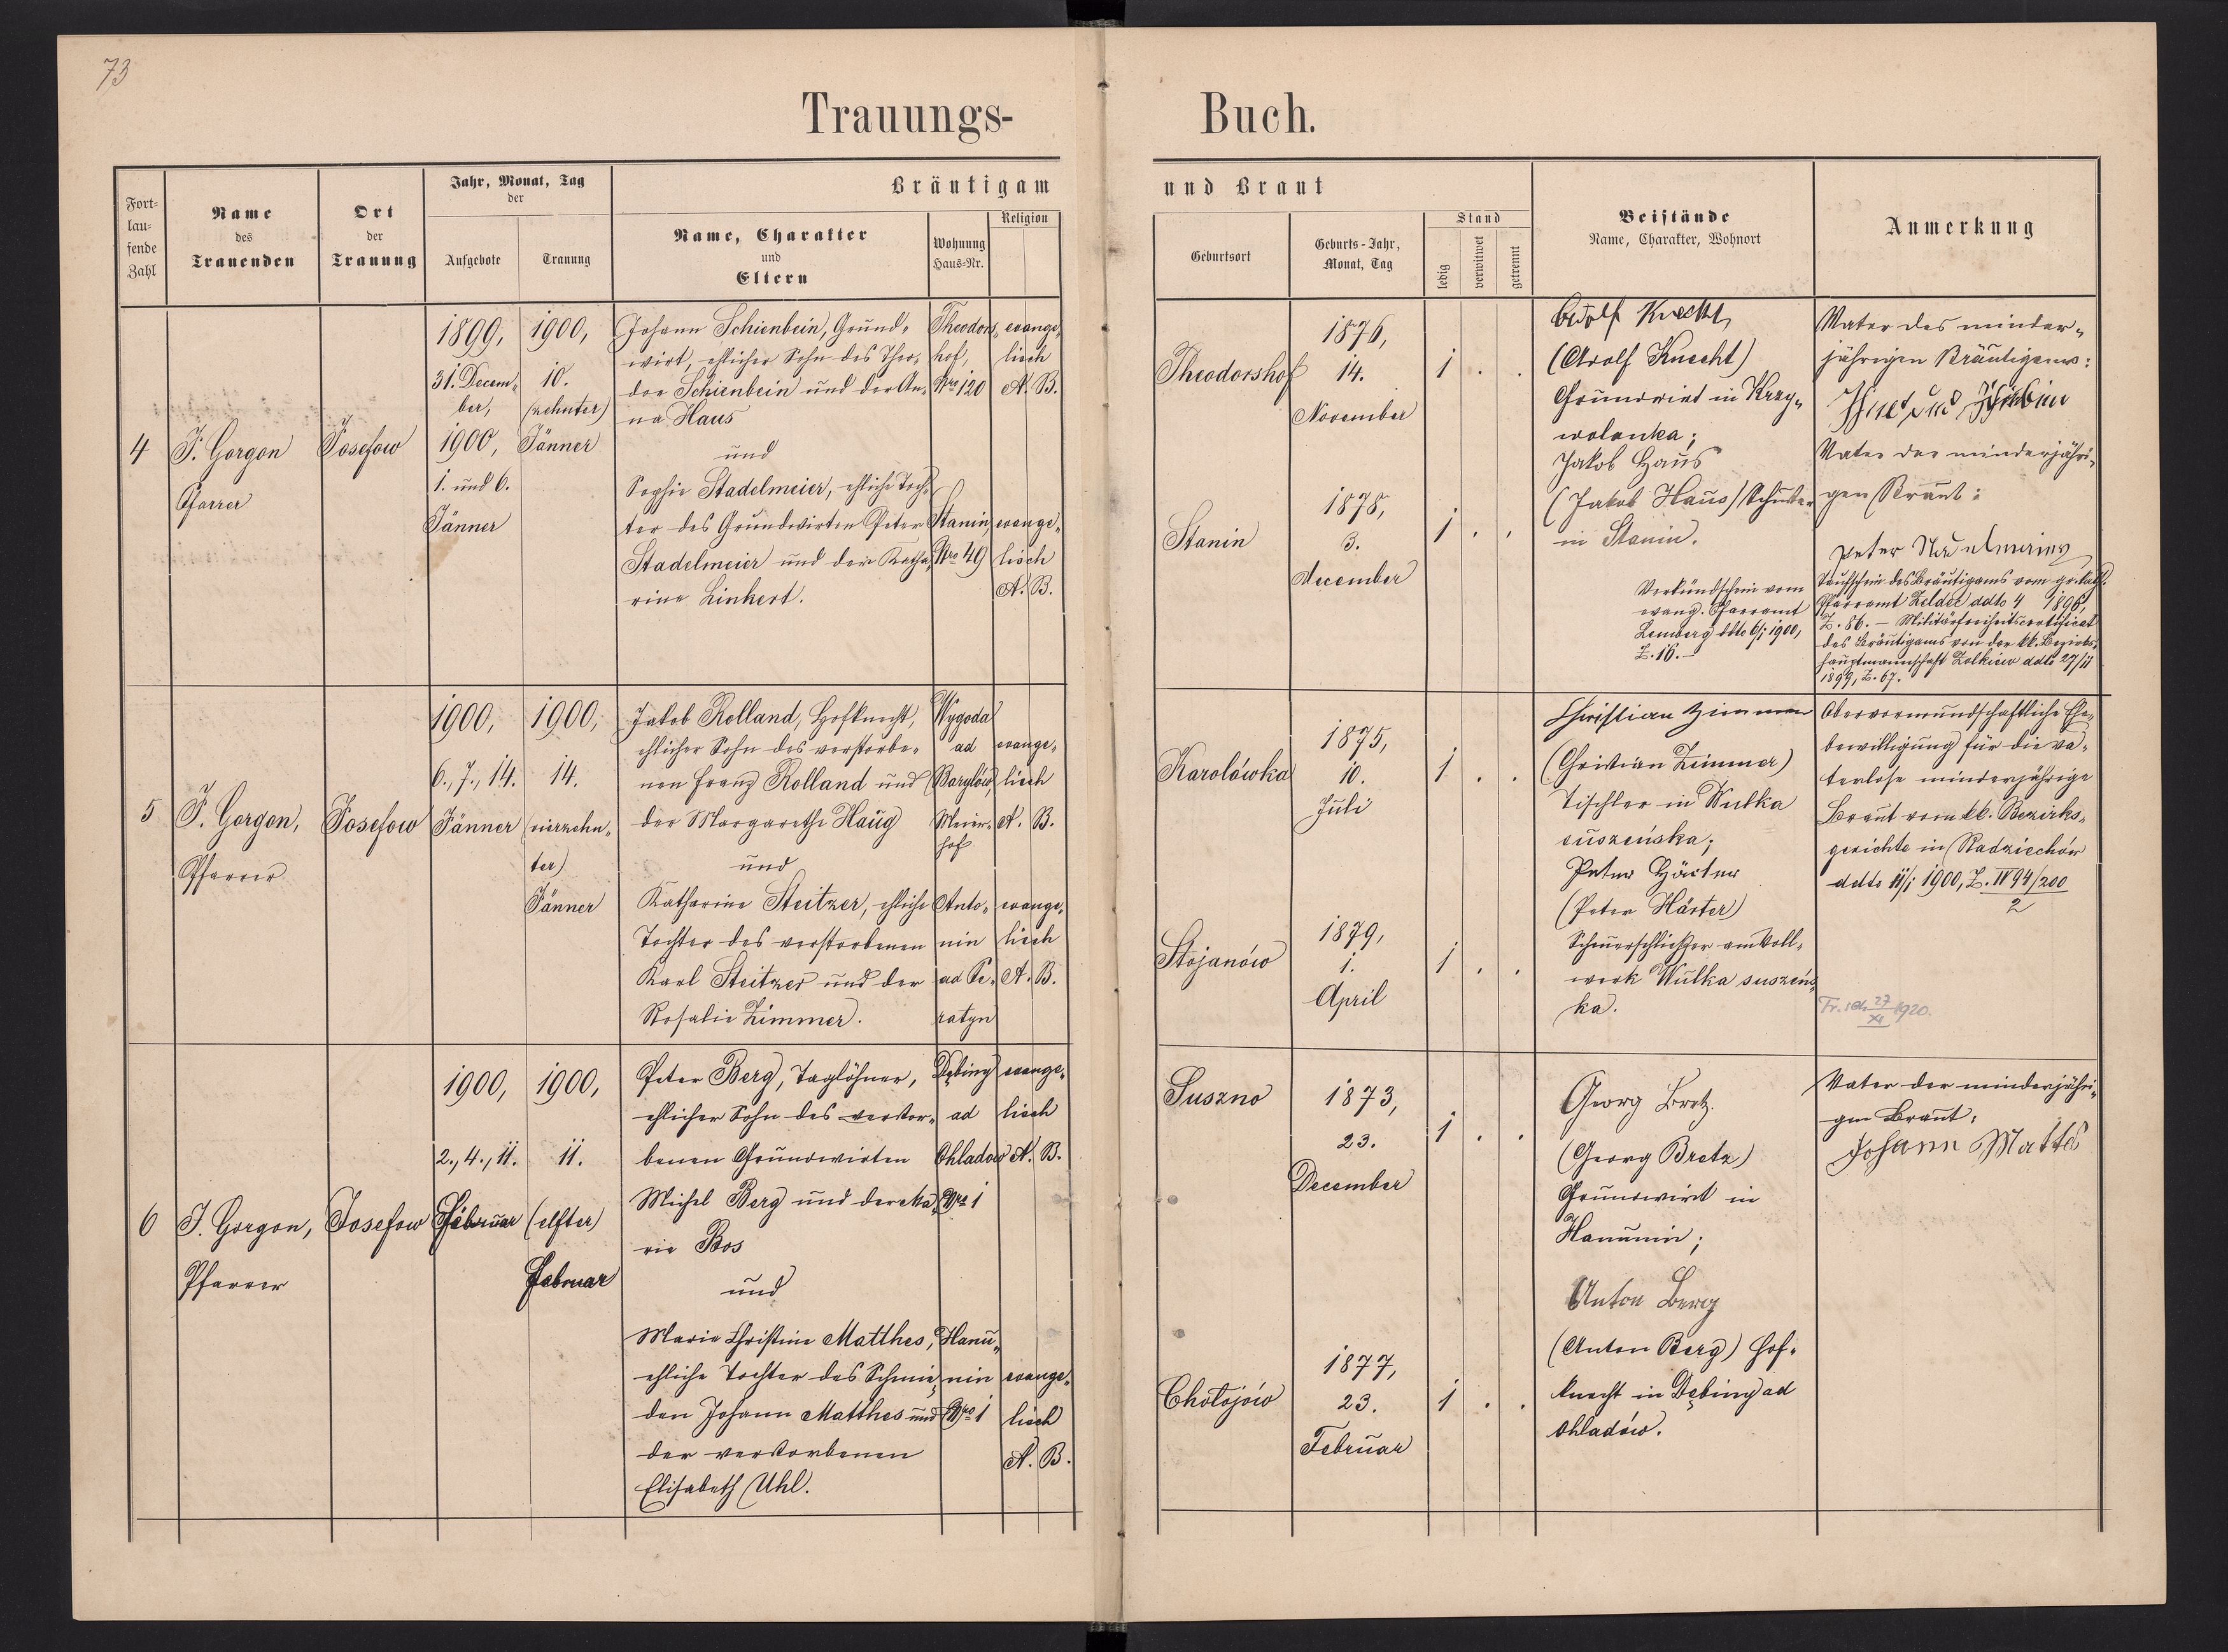 73
Trauungs-
Buch.
Fort-
lau-
fende
Zahl
Name
des
Trauenden
Ort
der
Trauung
Jahr, Monat, Tag
der
Aufgebote
Trauung
Bräutigam
Name, Charakter
und
Eltern
Wohnung
Haus-Nr.
Religion
und Braut
Geburtsort
Geburts-Jahr,
Monat, Tag
Stand
ledig
verwitwet
getrennt
Beistände
Name, Charakter, Wohnort
Anmerkung
4
J. Gorgon
Pfarrer
Josefow
1899,
31. Decem-
ber,
1900,
1. und 6.
Jänner
1900,
10.
(zehnter)
Jänner
Johann Schienbein, Grund-
wirt, ehlicher Sohn des Theo-
dor Schienbein und der An-
na Haus
und
Sophie Stadelmeier, ehliche Toch-
ter des Grundwirten Peter
Stadelmeier und der Katha-
rine Linkert.
Theodors-
hof,
Nro 120
Stanin,
Nro 49
evange-
lisch
A. B.
evange-
lisch
A. B.
Theodorshof
Stanin
1876,
14.
November
1878,
3.
December
1 . .
1 . .
Adolf Knecht
(Adolf Knecht)
Grundwirt in Krzy-
wolanka;
Jakob Haus
(Jakob Haus) Schuster
in Stanin.
Verkündschein vom
evang. Pfarramt
Lemberg ddto 6/1 1900,
Z. 16.—
Vater des minder-
jährigen Bräutigams:
Vater der minderjähri-
gen Braut:
Peter Stadelmeier
Taufschein des Bräutigams vom gr. kath.
Pfarramt Zeldec ddto 4 1896,
Z. 86. — Militärfreiheitscertificat
des Bräutigams von der kk. Bezirks-
hauptmannschaft Zolkiew ddto 27/11
1899, Z. 67.
5
J. Gorgon,
Pfarrer
Josefow
1900,
6., 7., 14.
Jänner
1900,
14.
(vierzehn-
ter)
Jänner
Jakob Rolland, Hofknecht,
ehlicher Sohn des verstorbe-
nen Franz Rolland und
der Margarethe Haug
und
Katharine Steitzer, ehliche
Tochter des verstorbenen
Karl Steitzer und der
Rosalie Zimmer.
Wygoda
ad
Barylów,
Meier-
hof
Anto-
nin
ad Pe-
ratyn
evange-
lisch
A. B.
evange-
lisch
A. B.
Karolówka
Stojanów
1875,
10.
Juli
1879,
1.
April
1 . .
1 . .
Christian Zimmer
(Christian Zimmer)
Tischler in Wulka
suszeńska;
Peter Härter
(Peter Härter)
Scheuerschließer am Voll-
werk Wulka suszeńs-
ka.
Obervormundschaftliche Ehe-
bewilligung für die va-
terlose minderjährige
Braut vom kk. Bezirks-
gerichte in Radziechów
ddto 11/1 1900, Z. IV 94/200
2
27
XI 1920.
6
J. Gorgon,
Pfarrer
Josefow
1900,
2., 4., 11.
Februar
1900,
11.
(elfter)
Februar
Peter Berg, Taglöhner,
ehlicher Sohn des verstor-
benen Grundwirten
Michel Berg und der Ma-
rie Bos
und
Marie Christine Matthes,
ehliche Tochter des Schmie-
den Johann Matthes und
der verstorbenen
Elisabeth Uhl.
Dębiny
ad
Ohladow
Nro 1
Hanu-
nin
Nro 1
evange-
lisch
A. B.
evange-
lisch
A. B.
Suszno
Chołojów
1873,
23.
December
1877,
23.
Februar
1 . .
1 . .
Georg Bretz.
(Georg Bretz)
Grundwirt in
Hanunin;
Anton Berg
(Anton Berg) Hof-
knecht in Dębiny ad
Ohladów.
Vater der minderjähri-
gen Braut:
Johann Mattes